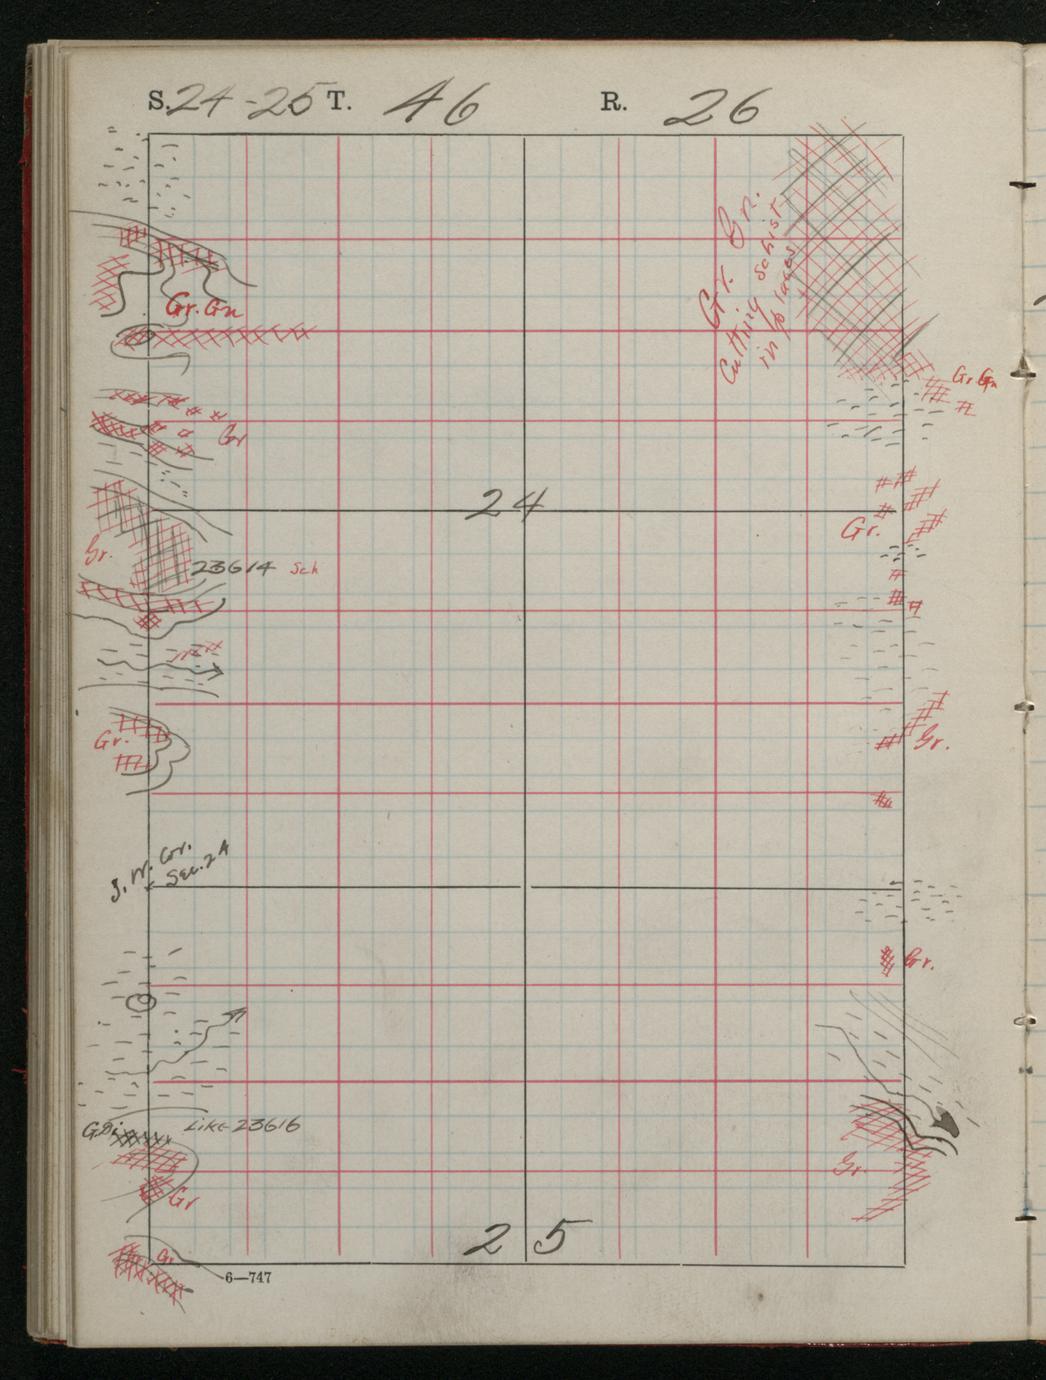 S. 24-25 T. 46 R. 26
Gr. Gn.
Cutting schist
in places
Gr. Gn
Gr. Gn
Gr
24
Gr.
Gr.
23614 Sch
Gr.
Gr.
S. W. Cor.
Sec. 24
Gr.
Like 23616
Gr.
Gr
25
Gr
6—747